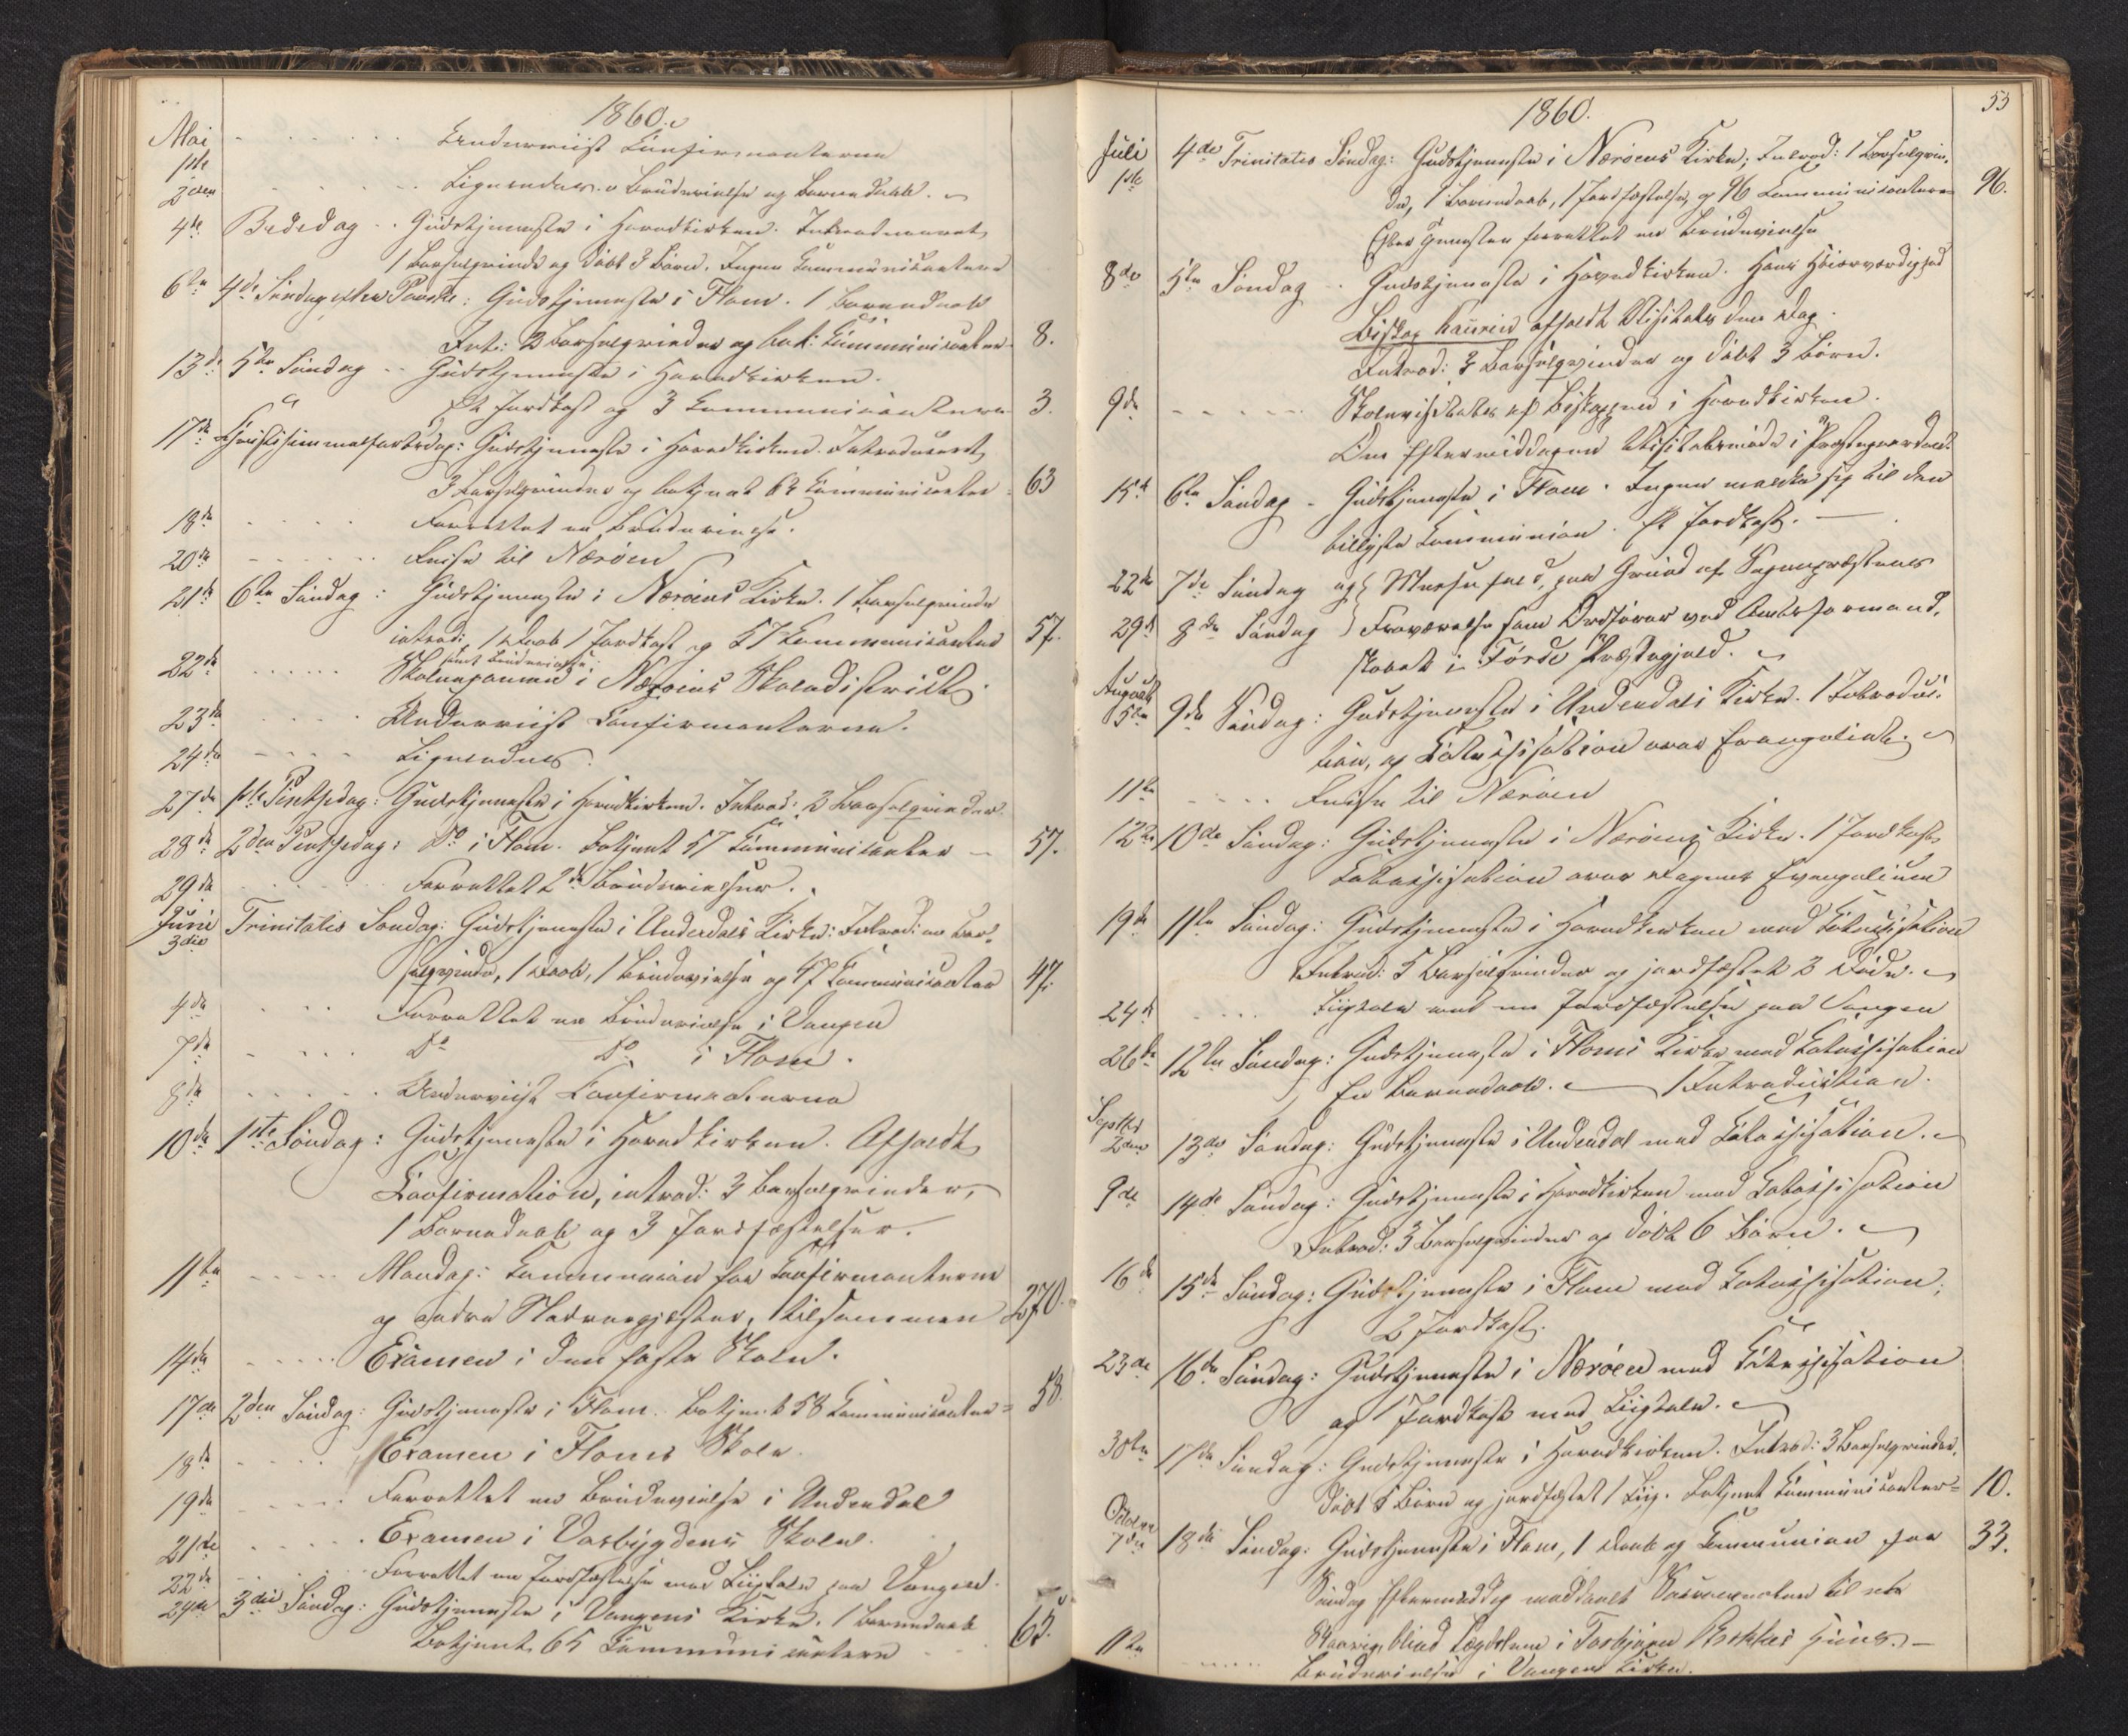 1860.
Mai
1ste Underviist Confirmanterne
2den Ligeeledes. Brudevielse og Barnedaab.
4de Bededag - Gudstjeneste i Hovedkirken. Introduceret
1 Barselqvinde og döbt 3 Börn. Ingen Communicantere
6te 4de Søndag efter Paaske: Gudstjeneste i Flam. 1 Barnedaab
Int: 3 Barselqvinder og betj: Communicanter 8.
13de 5te Søndag - Gudstjeneste i Hovedkirken.
Et Jordkast og 3 Communicantere 3.
17de Christi Himmelfartsdag: Gudstjeneste i Hovedkirken. Introduceret
3 Barselqvinder og betjent 63 Communicanter 63
18de Forrettet en Brudevielse.
20de Reise til Nærøen
21de 6te Søndag: Gudstjeneste i Nærøens Kirke. 1 Barselqvinde
introd: 1 Daab 1 Jordkast og 57 Communicanter 57.
samt Brudevielse;
22de Skoleexamen i Nærøens Skoledistrict.
23de Underviist Confirmanterne.
24de Ligeeledes.
27de 1ste Pintsedag: Gudstjeneste i Hovedkirken. Introd: 3 Barselqvinder
28de 2den Pintsedag: Do i Flam. Betjent 57 Communicanter - 57.
29de Forrettet 2de Brudevielser.
Juni
3die Trinitatis Søndag: Gudstjeneste i Undedals Kirke: Introd: en Bar-
selqvinde, 1 Daab, 1 Brudevielse og 47 Communicanter 47.
4de Forrettet en Brudevielse i Vangen
7de Do Do i Flam.
8de Underviist Confirmanterne
10de 1ste Søndag: Gudstjeneste i Hovedkirken. Afholdt
Confirmation, introd: 3 Barselqvinder,
1 Barnedaab og 3 Jordfæstelser.
11te Mandag: Communion for Confirmanterne
og andre Nadveregjæster, tilsammen 270.
14de Examen i den faste Skole.
17de 2den Søndag: Gudstjeneste i Flam. Betjent 58 Communicanter = 58
18de Examen i Flams Skole.
19de Forrettet en Brudevielse i Undedal
21de Examen i Vasbygdens Skole.
22de Forrettet en Jordfæstelse med Liigtale paa Vangen.
24de 3die Søndag: Gudstjeneste i Vangens Kirke. 1 Barnedaab
Betjent 65 Communicantere 65.
53
1860.
Juli
1ste 4de Trinitatis Søndag: Gudstjeneste i Nærøens Kirke; Introd: 1 Barselqvin-
de, 1 Barnedaab, 1 Jordfæstelse, og 96 Communicantere 96.
Efter Tjenesten forrettet en Brudevielse
8de 5te Søndag - Gudstjeneste i Hovedkirken. Hans Høiærværdighed
Biskop Kaurin afholdt Visitats den Dag.
Introd: 3 Barselqvinder og döbt 3 Börn.
9de Skolevisitats af Biskoppen i Hovedkirken.
Om Eftermiddagen Visitatsmøde i Præstegaarden.
15de 6te Søndag - Gudstjeneste i Flam. Ingen meldte sig til den
tillyste Communion. Et Jordkast.
22de 7de Søndag og } Messefald, paa Grund af Sognepræstens
29de 8de Søndag } Fraværelse som Ordfører ved Amtsformand-
skabet i Førde Præstegjeld.
August
5te 9de Søndag: Gudstjeneste i Undedals Kirke. 1 Introduc-
tion, og Catechisation over Evangeliet.
11te Reise til Nærøen
12te 10de Søndag: Gudstjeneste i Nærøens Kirke. 1 Jordkast
Catechisation over Dagens Evangelium
19de 11te Søndag: Gudstjeneste i Hovedkirken med Catechisation
Introd: 5 Barselqvinder og jordfæstet 3 Døde.
24de Liigtale ved en Jordfæstelse paa Vangen
26de 12te Søndag: Gudstjeneste i Flams Kirke med Catechisation
En Barnedaab. 1 Introduction.
Septbr
2den 13de Søndag: Gudstjeneste i Undedal med Catechisation.
9de 14de Søndag: Gudstjeneste i Hovedkirken med Catechisation
Introd: 3 Barselqvinder og döbt 6 Børn.
16de 15de Søndag: Gudstjeneste i Flam med Catechisation;
2 Jordkast.
23de 16de Søndag: Gudstjeneste i Nærøen med Catechisation
og 1 Jordkast med Liigtale.
30te 17de Søndag: Gudstjeneste i Hovedkirken. Introd: 3 Barselqvinder,
döbt 5 Børn og jordfæstet 1 Liig. Betjent Communicanter = 10.
October
7de 18de Søndag: Gudstjeneste i Flam, 1 Daab og Communion for 33.
Søndag Eftermiddag meddeelt Sacramentet til
blind Lægdslem i
11te Brudevielse i Vangens Kirke.